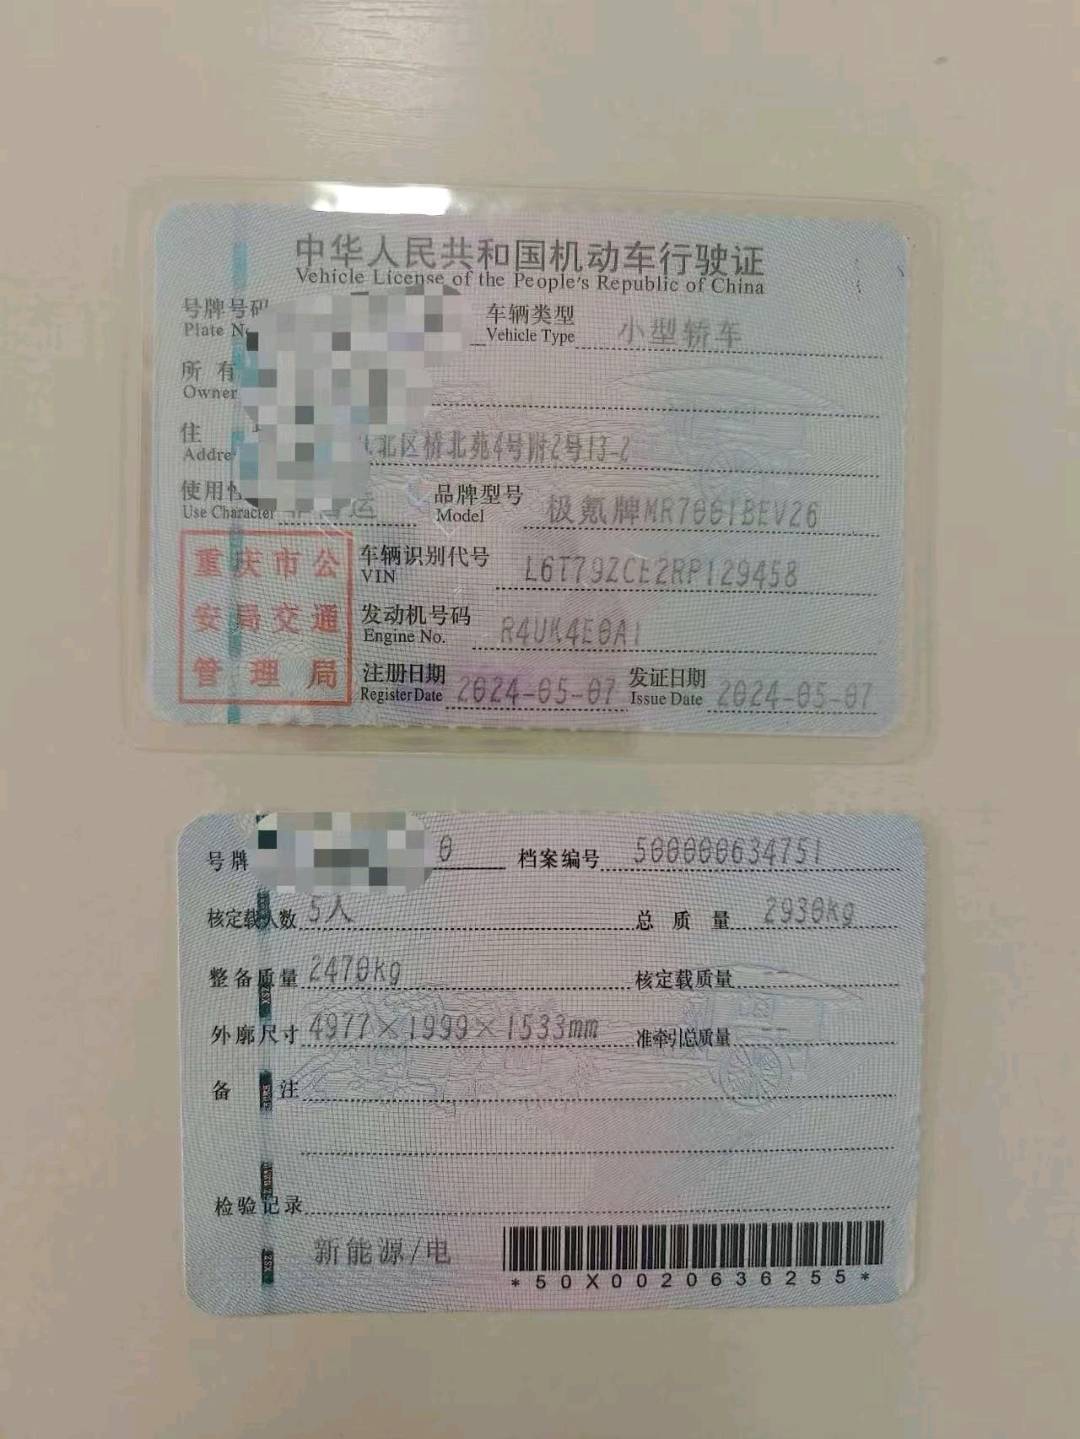 中华人民共和国机动车行驶证
Vehicle License of the People's Republic of China
号牌号码
Plate No
车辆类型 小型轿车
Vehicle Type
所有
Owner
住 北区桥北苑4号附2号13-2
Addre
使用性 非营运
Use Character
品牌型号 极氪牌MR7001BEV26
Model
重庆市公
安局交通
管理局
车辆识别代号 L6T79ZCE2RP129458
VIN
发动机号码 R4UK4E0A1
Engine No.
注册日期 2024-05-07 发证日期 2024-05-07
Register Date Issue Date
号牌 0 档案编号 500000634751
核定载人数 5人 总质量 2930kg
整备质量 2470kg 核定载质量 --
外廓尺寸 4977×1999×1533mm 准牵引总质量 --
备注
检验记录
新能源/电
*50X0020636255*